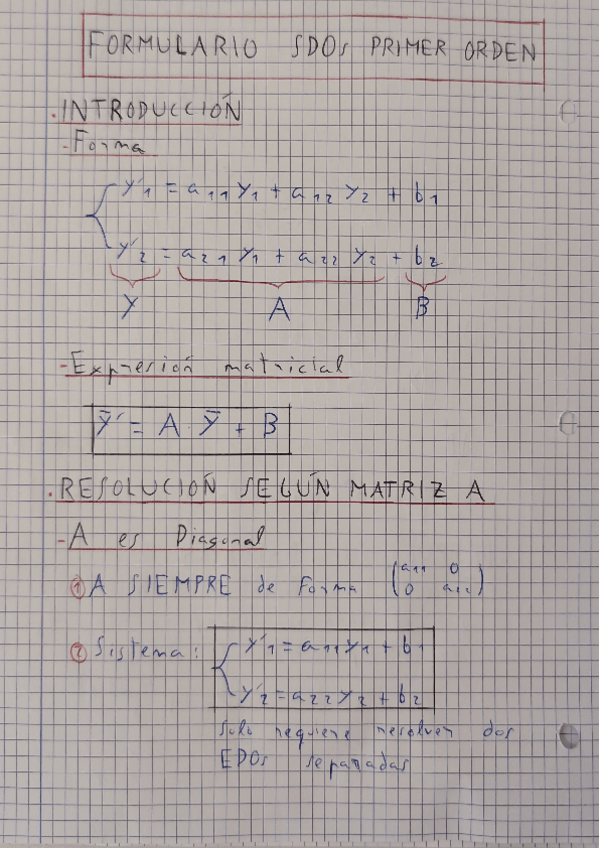 FORMULARIO SDOs PRIMER ORDEN
. INTRODUCCIÓN
- Forma
y'1 = a11 y1 + a12 y2 + b1
y'2 = a21 y1 + a22 y2 + b2
Y A B
- Expresión matricial
Ȳ' = A · Ȳ + B
. RESOLUCIÓN SEGÚN MATRIZ A
- A es Diagonal
① A SIEMPRE de Forma (a11 0
0 a22)
② Sistema: { y'1 = a11 y1 + b1
y'2 = a22 y2 + b2
Solo requiere resolver dos
EDOs separadas